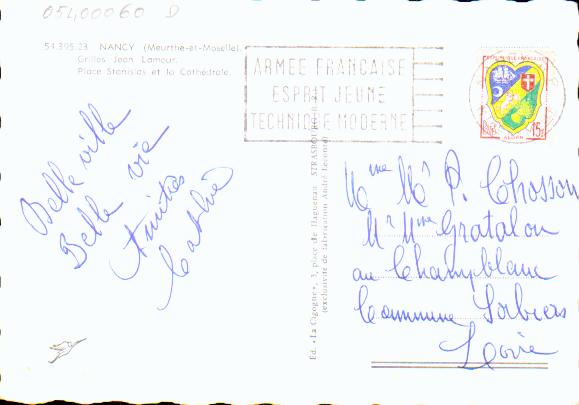 05400060 D
54.395.23 NANCY (Meurthe-et-Moselle).
Grilles Jean Lamour.
Place Stanislas et la Cathédrale.
ARMEE FRANÇAISE
ESPRIT JEUNE
TECHNIQUE MODERNE
REPUBLIQUE FRANÇAISE
15f
ALGER
Belle ville
Belle vie
Amitiés
Mme Mr P. Chosson
Mr Mme Gratalon
au Champblanc
Commune Sorbiers
Loire
Ed. « La Cigogne », 3, place de Haguenau STRASBOURG
(exclusivité de fabrication André Leconte)